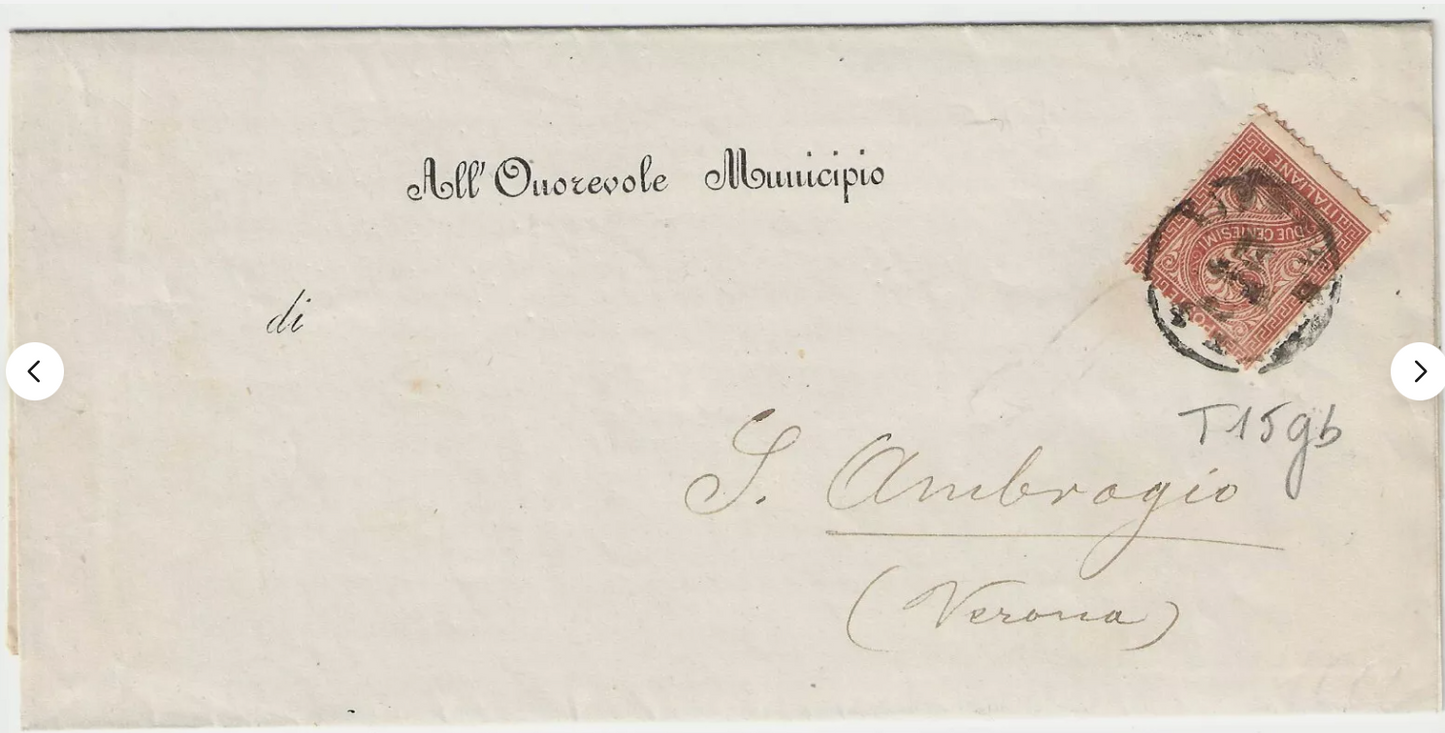 All' Onorevole Municipio
di
S. Ambrogio
(Verona)
T15gb
ITALIANE
DUE CENTESIMI